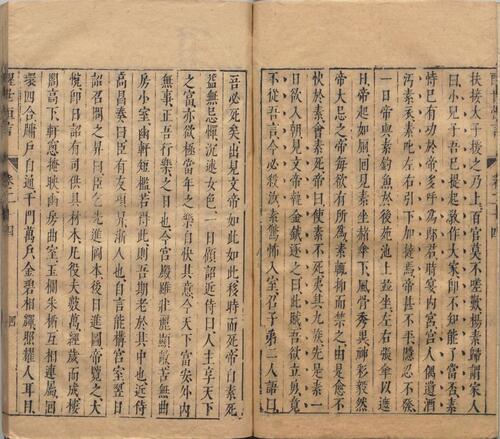 扶接太子援之乃上百官莫不嗟歎楊素歸謂家人
曰小兒子吾已提起教作大家即不知能了當否素
恃已有功於帝多呼為郎君時宴內宮宮人偶遺酒
汚素衣素叱左右引下加撻焉帝甚不平隱忍不發
一日帝與素釣魚於後苑池上並坐左右張傘以遮
日帝起如厠回見素坐赭傘下風骨秀異神彩毅然
帝大忌之帝每欲有所為素輒抑而禁之由是愈不
快於素會素死帝曰使素不死夷其九族先是素一
日欲入朝見文帝執金鉞逐之曰此賊吾欲立勇竟
不從吾言今必殺汝素驚怖入室召子弟二人語曰
吾必死矣出見文帝如此如此移時而死帝自素死
益無忌憚沉迷女色一日顧詔近侍曰人主享天下
之富亦欲極當年之樂自快其意今天下富安外內
無事正吾行樂之日也今宮殿雖壯麗顯敞苦無曲
房小室幽軒短檻若得此則吾期老於其中也近侍
高昌奏曰臣有友項昇浙人也自言能構宮室翌日
詔召問之昇曰臣乞先進圖本後日進圖帝覽之大
悅即日詔有司供具材木凡役夫數萬經歲而成樓
閣高下軒窻掩映幽房曲室玉欄朱楯互相連屬回
環四合牖戶自通千門萬戶金碧相輝照耀人耳目
醒世恆言　卷二十四　四